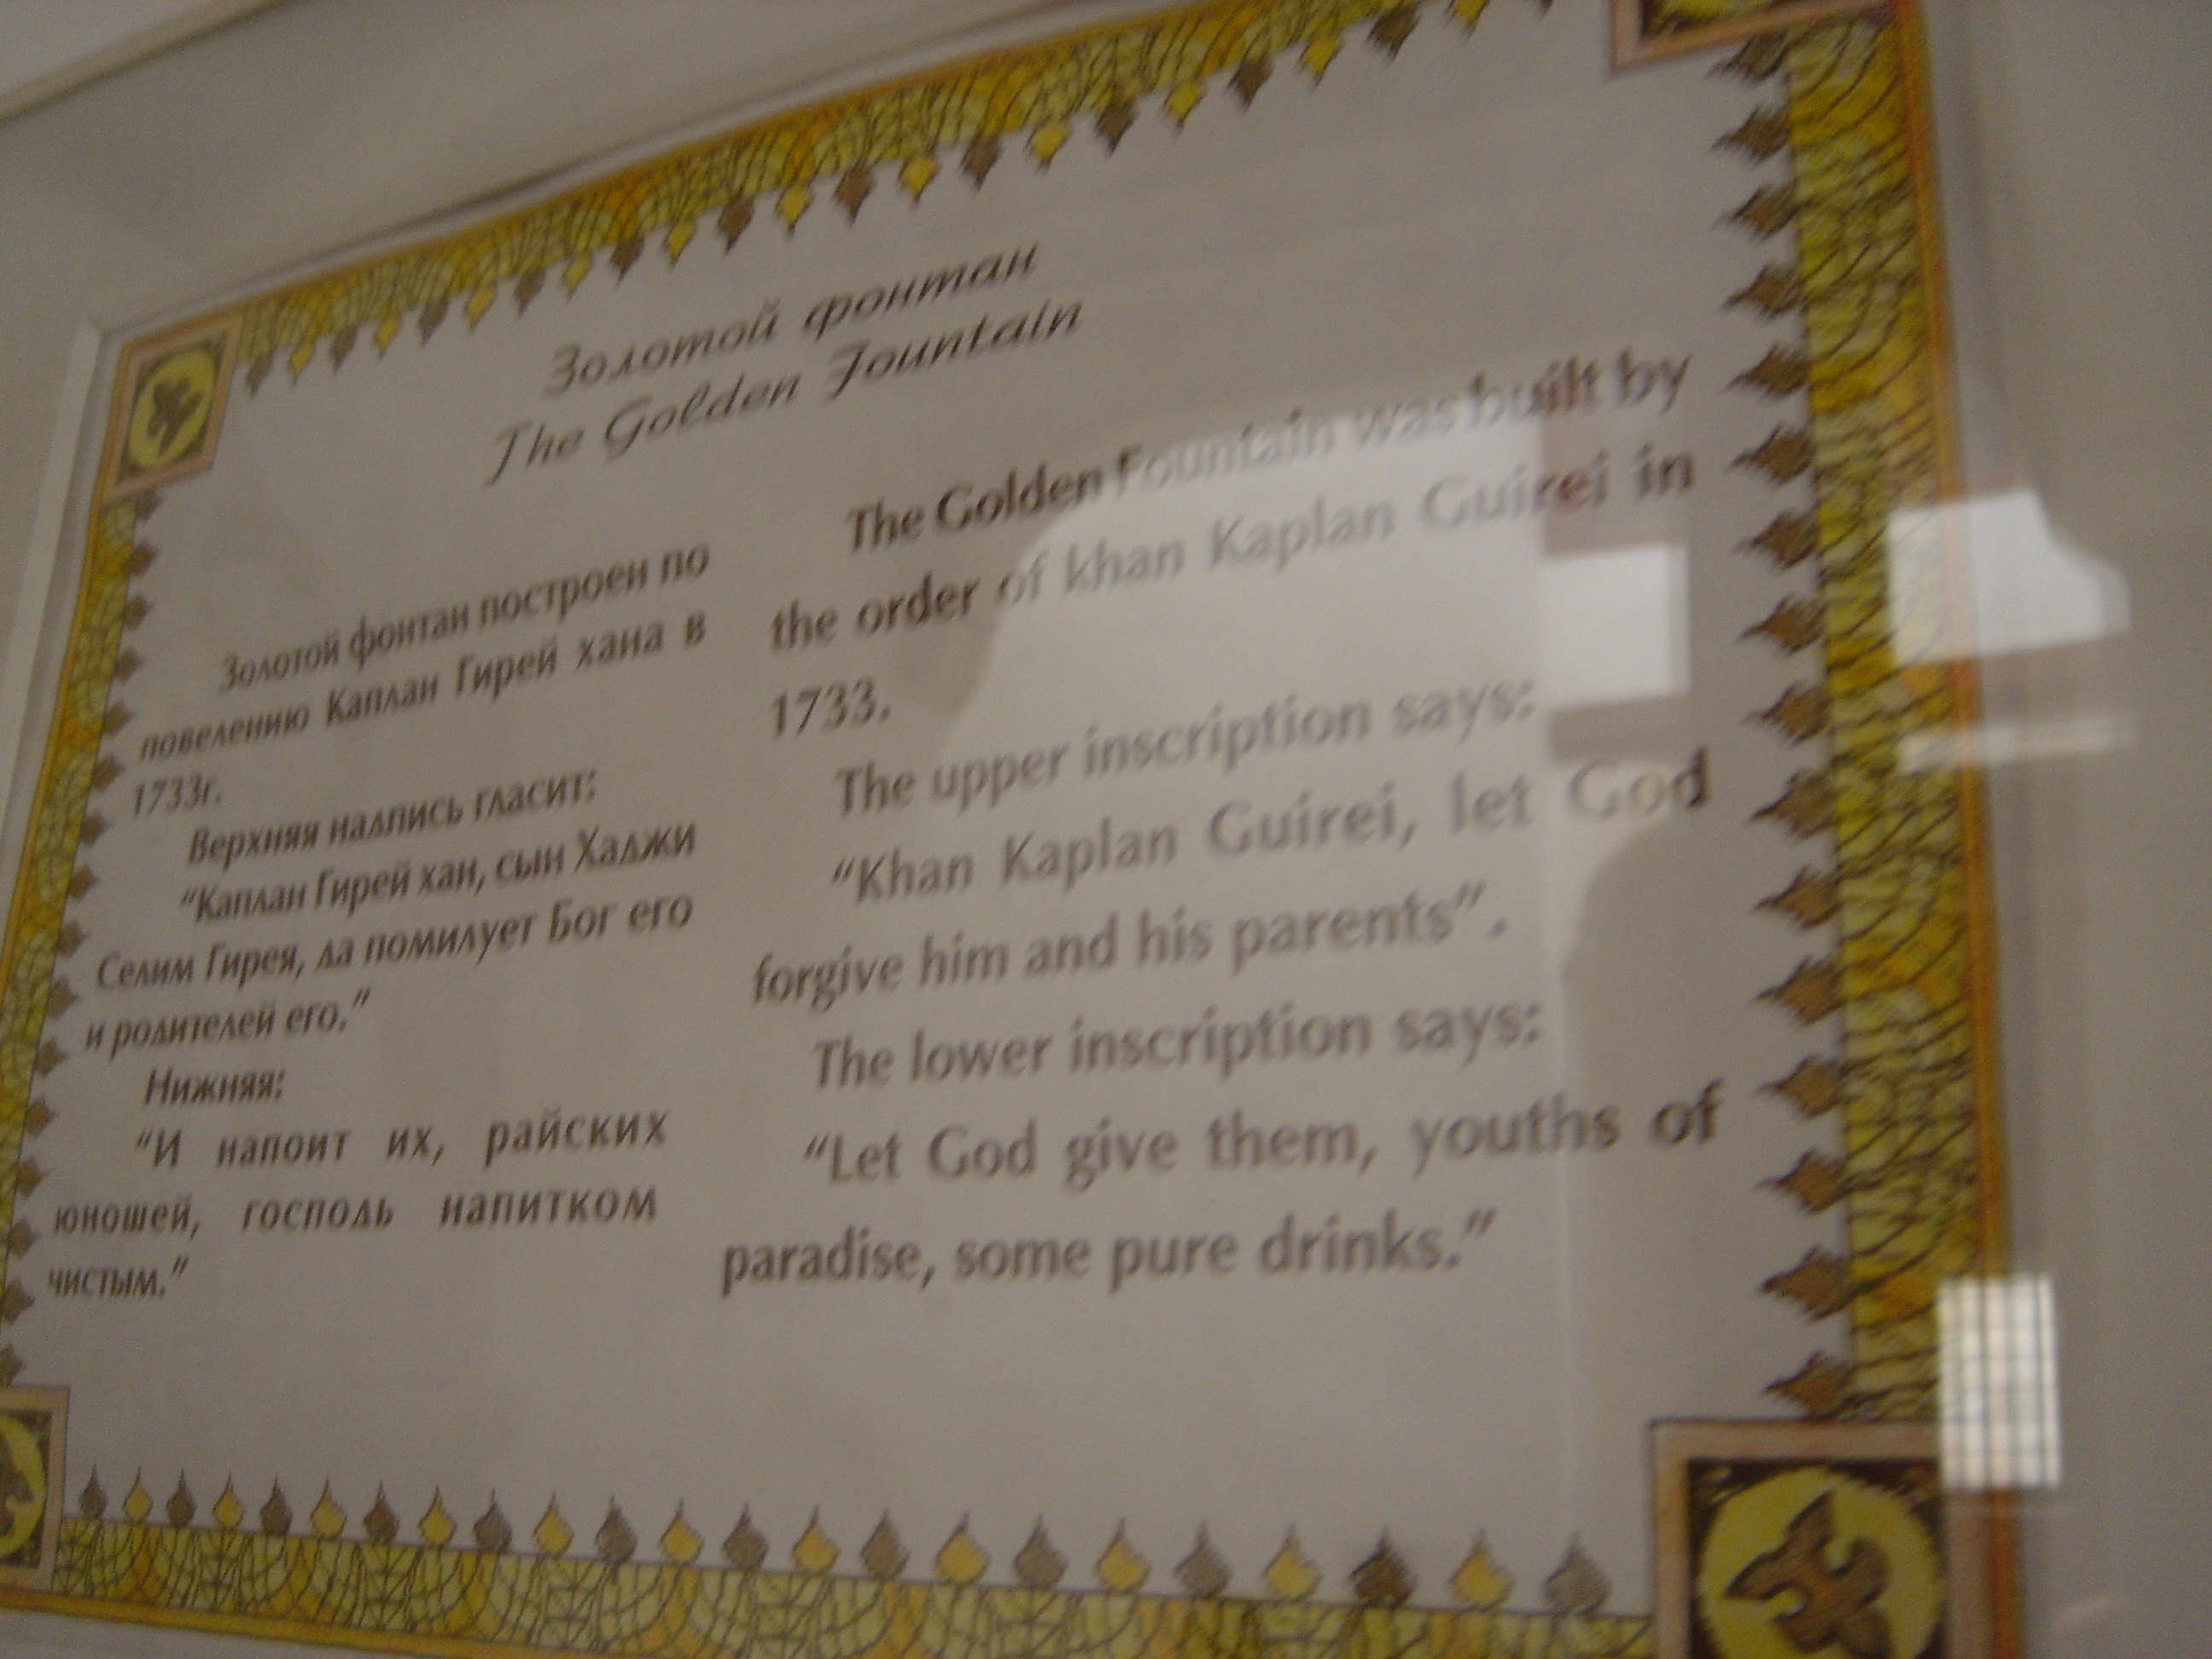 Золотой фонтан
The Golden Fountain
Золотой фонтан построен по
повелению Каплан Гирей хана в
1733г.
Верхняя надпись гласит:
"Каплан Гирей хан, сын Хаджи
Селим Гирея, да помилует Бог его
и родителей его."
Нижняя:
"И напоит их, райских
юношей, господь напитком
чистым."
The Golden Fountain was built by
the order of khan Kaplan Guirei in
1733.
The upper inscription says:
"Khan Kaplan Guirei, let God
forgive him and his parents".
The lower inscription says:
"Let God give them, youths of
paradise, some pure drinks."